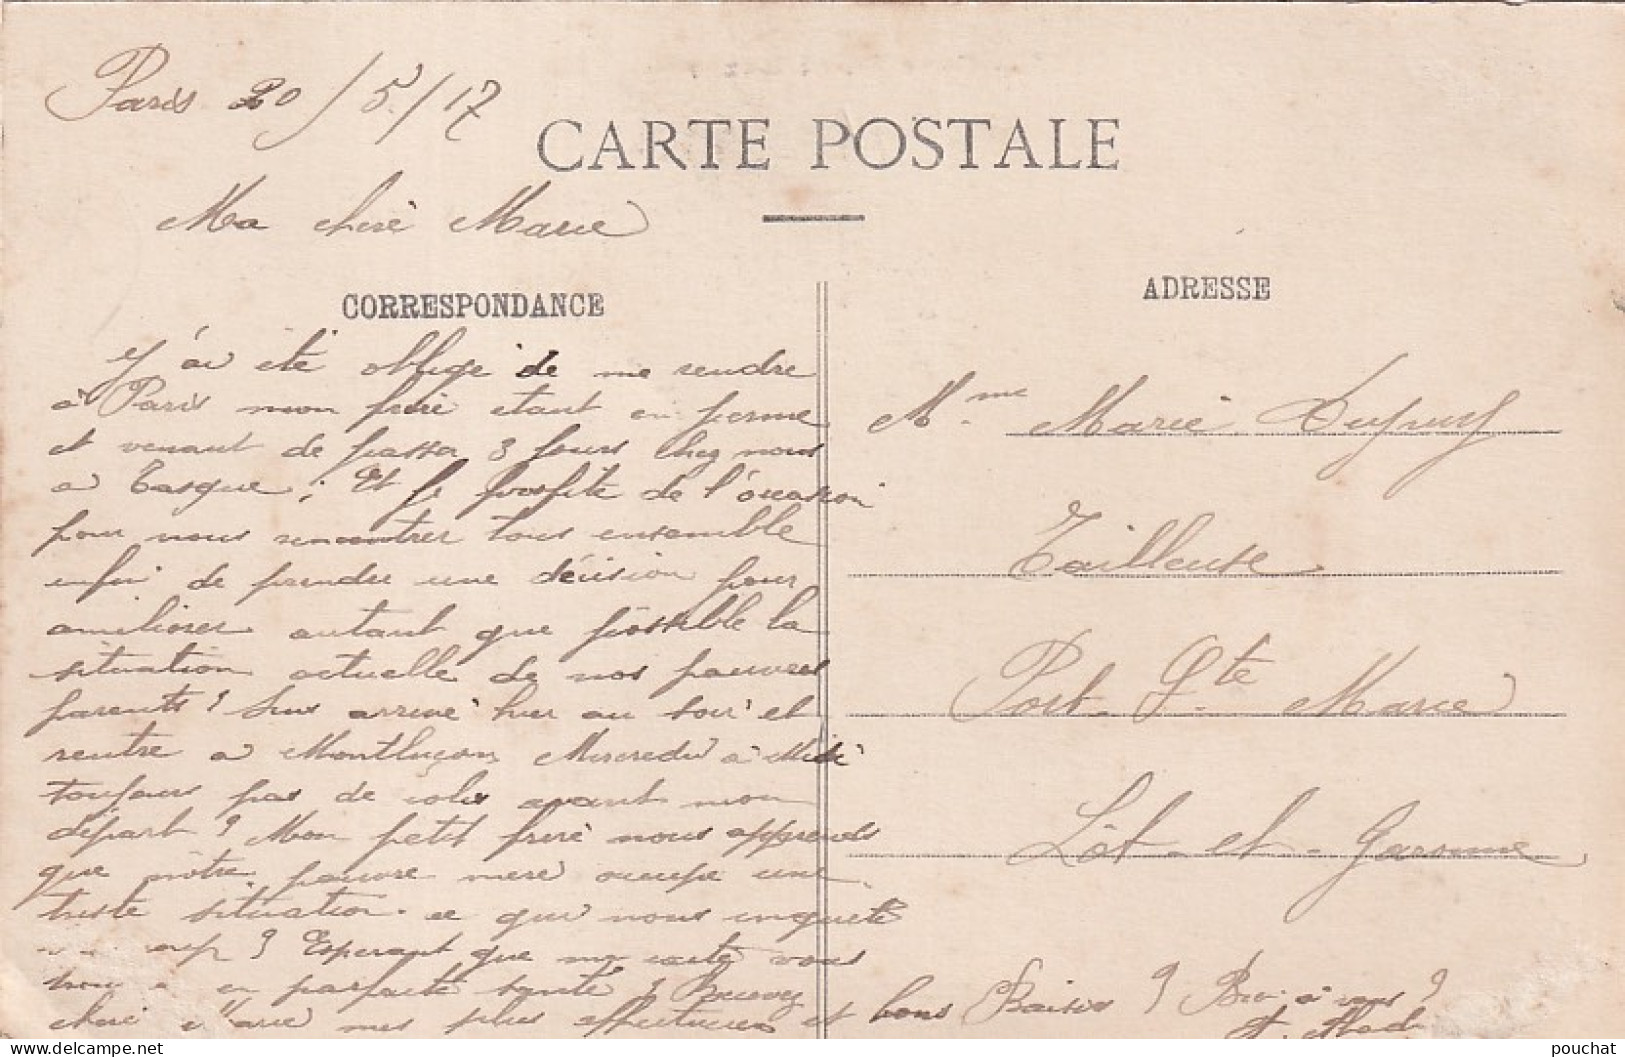 Paris 20/5/17
CARTE POSTALE
Ma cherè Marie
CORRESPONDANCE
ADRESSE
J'ai été obligé de me rendre
à Paris mon frère etant en perme
et venant de passer 3 jours chez nous
a Tasque ; Et je profite de l'occasion
pour nous rencontrer tous ensemble
enfin de prendre une décision pour
améliorer autant que possible la
situation actuelle de nos pauvres
parents ? Suis arrivé hier au soir et
rentre a Montluçon Mercredi à Midi
toujours pas de colis avant mon
départ ? Mon petit frère nous apprends
que nôtre pauvre mere occupe une
triste situation. ce qui nous inquiète
? Esperant que ma carte vous
en parfaite santé ? Recevez
cheri Marie mes plus affectueux et bons Baisers ? Bien à vous ?
Mme Marie Dupuy
Tailleuse
Port Ste Marie
Lôt-et-Garonne
pouchat